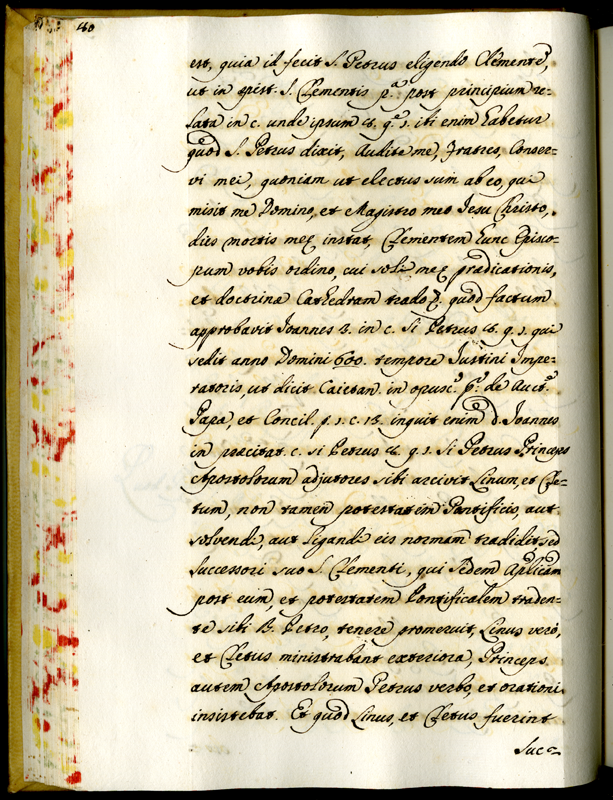 180
est, quia id fecit S. Petrus eligendo Clementẽ,
ut in epist. S. Clementis p.ª post principium re-
lata in c. unde ipsum 8. q. 1. ibi enim habetur
quod S. Petrus dixit, Audite me, Fratres, Conser-
vi mei, quoniam ut electus sum ab eo, qui
misit me Domino, et Magistro meo Iesu Christo,
dies mortis meę instat, Clementem hunc Episco-
pum vobis ordino, cui soli meę prædicationis,
et doctrinæ Cathedram trado. quod factum
approbavit Ioannes 3. in c. Si Petrus 8. q. 1. qui
sedit anno Domini 600. tempore Iustini Impe-
ratoris, ut dicit Caietan. in opusc. p.º de Auct.
Papæ, et Concil. p. 1. c. 13. inquit enim d. Ioannes
in præcitat. c. si Petrus 8. q. 1. Si Petrus Princeps
Apostolorum adjutores sibi ascivit Linum, et Cle-
tum, non tamen potestatem Pontificio, aut
solvendi, aut ligandi eis normam tradidit, sed
successori suo S. Clementi, qui Sedem Aplicam
post eum, et potestatem Pontificalem traden-
te sibi B. Petro, tenere promeruit, Linus verò,
et Cletus ministrabant exteriora, Princeps
autem Apostolorum Petrus verbo, et orationi
insistebat. Et quod Linus, et Cletus fuerint
Suc-